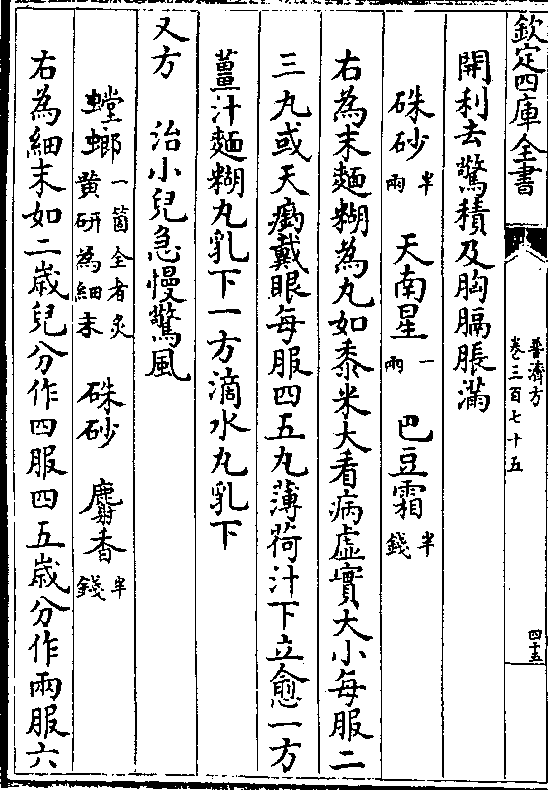 欽定四庫全書
普濟方
卷三百七十五
四十五
開利去驚積及胸膈脹滿
硃砂半兩 天南星一兩 巴豆霜半錢
右為末麵糊為丸如黍米大看病虛實大小每服二
三丸或天瘹戴眼每服四五丸薄荷汁下立愈一方
薑汁麵糊丸乳下一方滴水丸乳下
又方 治小兒急慢驚風
螳螂一箇全者炙黄研為細末 硃砂 麝香半錢
右為細末如二歲兒分作四服四五歲分作兩服六